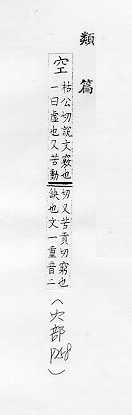 類篇
空
枯公切說文竅也
一曰虛也又苦動
切又苦貢切窮也
缺也文一重音二
(穴部